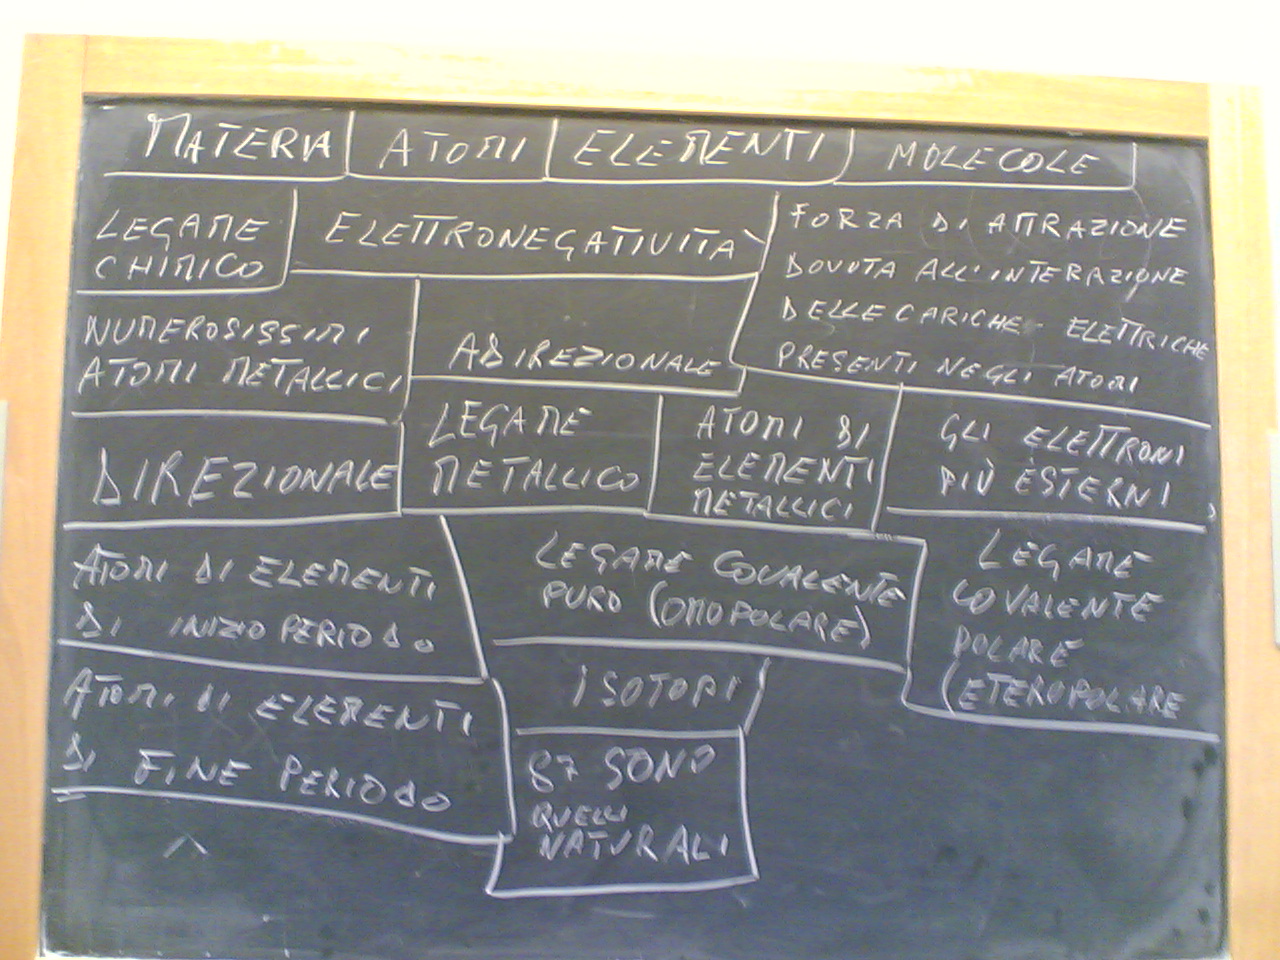 MATERIA
ATOMI
ELEMENTI
MOLECOLE
LEGAME
CHIMICO
ELETTRONEGATIVITÀ
FORZA DI ATTRAZIONE
DOVUTA ALL'INTERAZIONE
DELLE CARICHE ELETTRICHE
PRESENTI NEGLI ATOMI
NUMEROSISSIMI
ATOMI METALLICI
ADIREZIONALE
DIREZIONALE
LEGAME
METALLICO
ATOMI DI
ELEMENTI
METALLICI
GLI ELETTRONI
PIÙ ESTERNI
ATOMI DI ELEMENTI
DI INIZIO PERIODO
LEGAME COVALENTE
PURO (OMOPOLARE)
LEGAME
COVALENTE
POLARE
(ETEROPOLARE
ATOMI DI ELEMENTI
DI FINE PERIODO
ISOTOPI
87 SONO
QUELLI
NATURALI